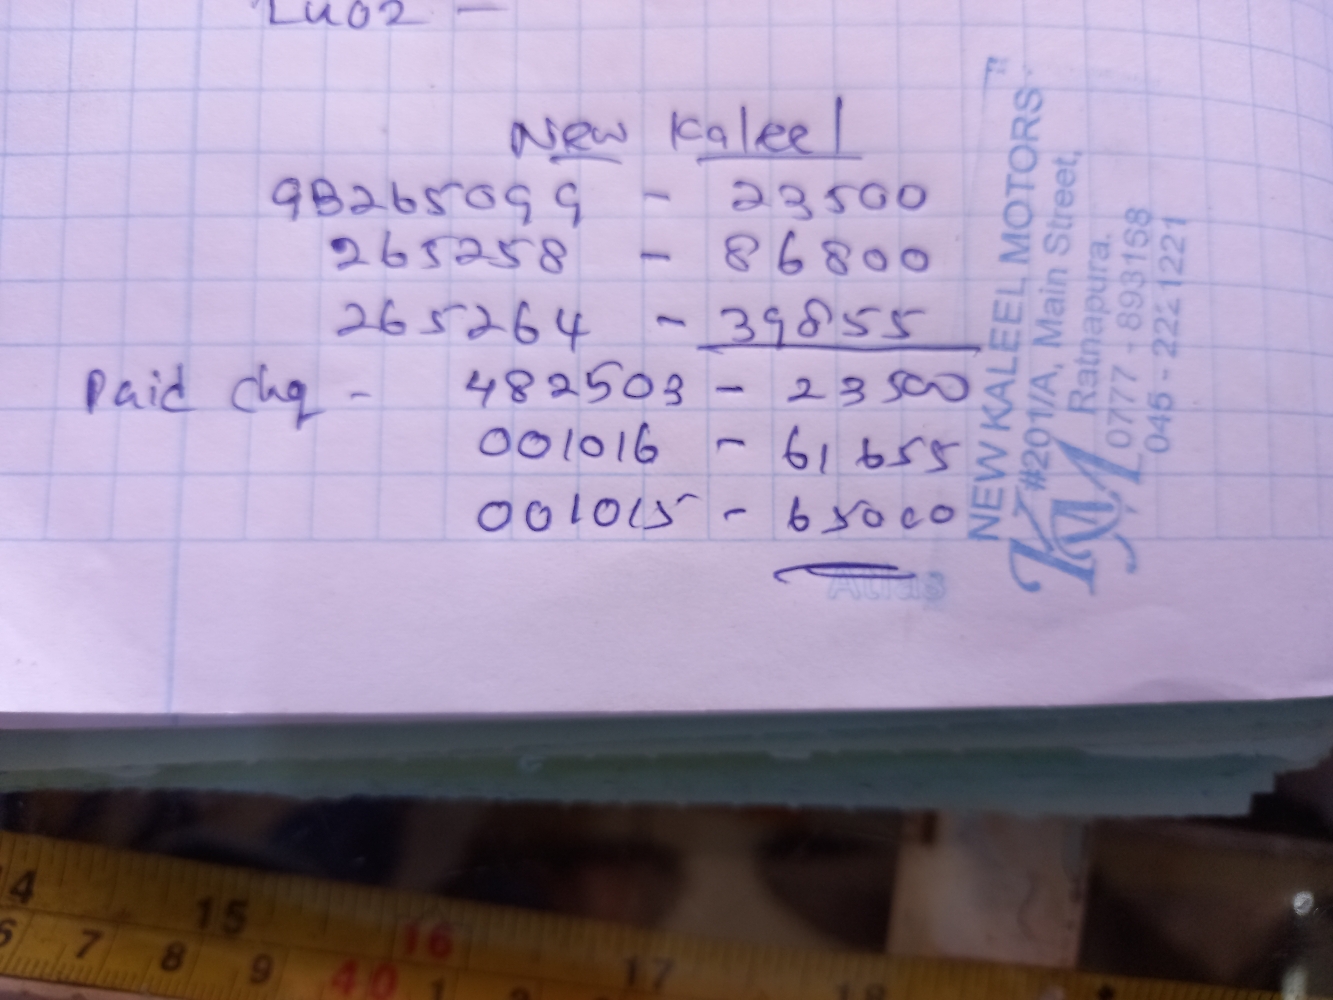 New Kaleel
9B265099 - 23500
265258 - 86800
265264 - 39855
Paid Chq - 482503 - 23500
001016 - 61655
001015 - 65000
NEW KALEEL MOTORS
#201/A, Main Street,
Ratnapura.
0777 - 893158
045 - 222 1221
KM
Atlas
4 15 16 17 18
6 7 8 9 40 1 2